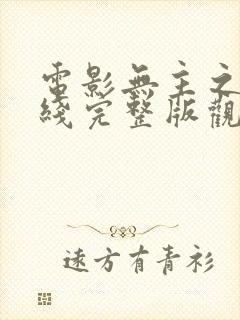 電影無主之
綫完整版觀
遠方有青衫